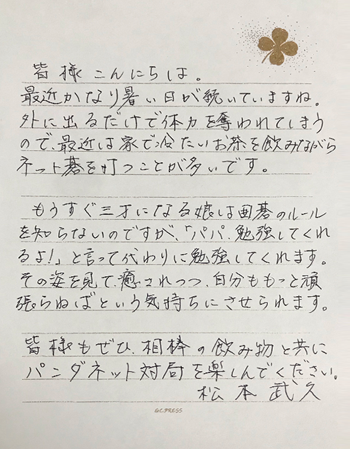 皆様こんにちは。
最近かなり暑い日が続いていますね。
外に出るだけで体力を奪われてしまう
ので、最近は家で冷たいお茶を飲みながら
ネット碁を打つことが多いです。
もうすぐ三才になる娘は囲碁のルール
を知らないのですが、「パパ、勉強してくれ
るよ!」と言って代わりに勉強してくれます。
その姿を見て、癒されつつ、自分ももっと頑
張らねばという気持ちにさせられます。
皆様もぜひ、相棒の飲み物と共に
パンダネット対局を楽しんでください。
松本武久
G.C.PRESS